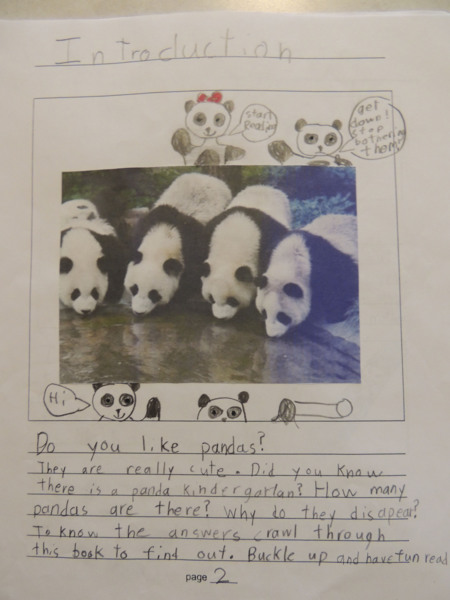 Introduction
start
Reading
get
down!
stop
bothering
them!
Hi
Do you like pandas?
They are really cute. Did you know
there is a panda kindergartan? How many
pandas are there? why do they disapear?
To know the answers crawl through
this book to find out. Buckle up and have fun read
page 2